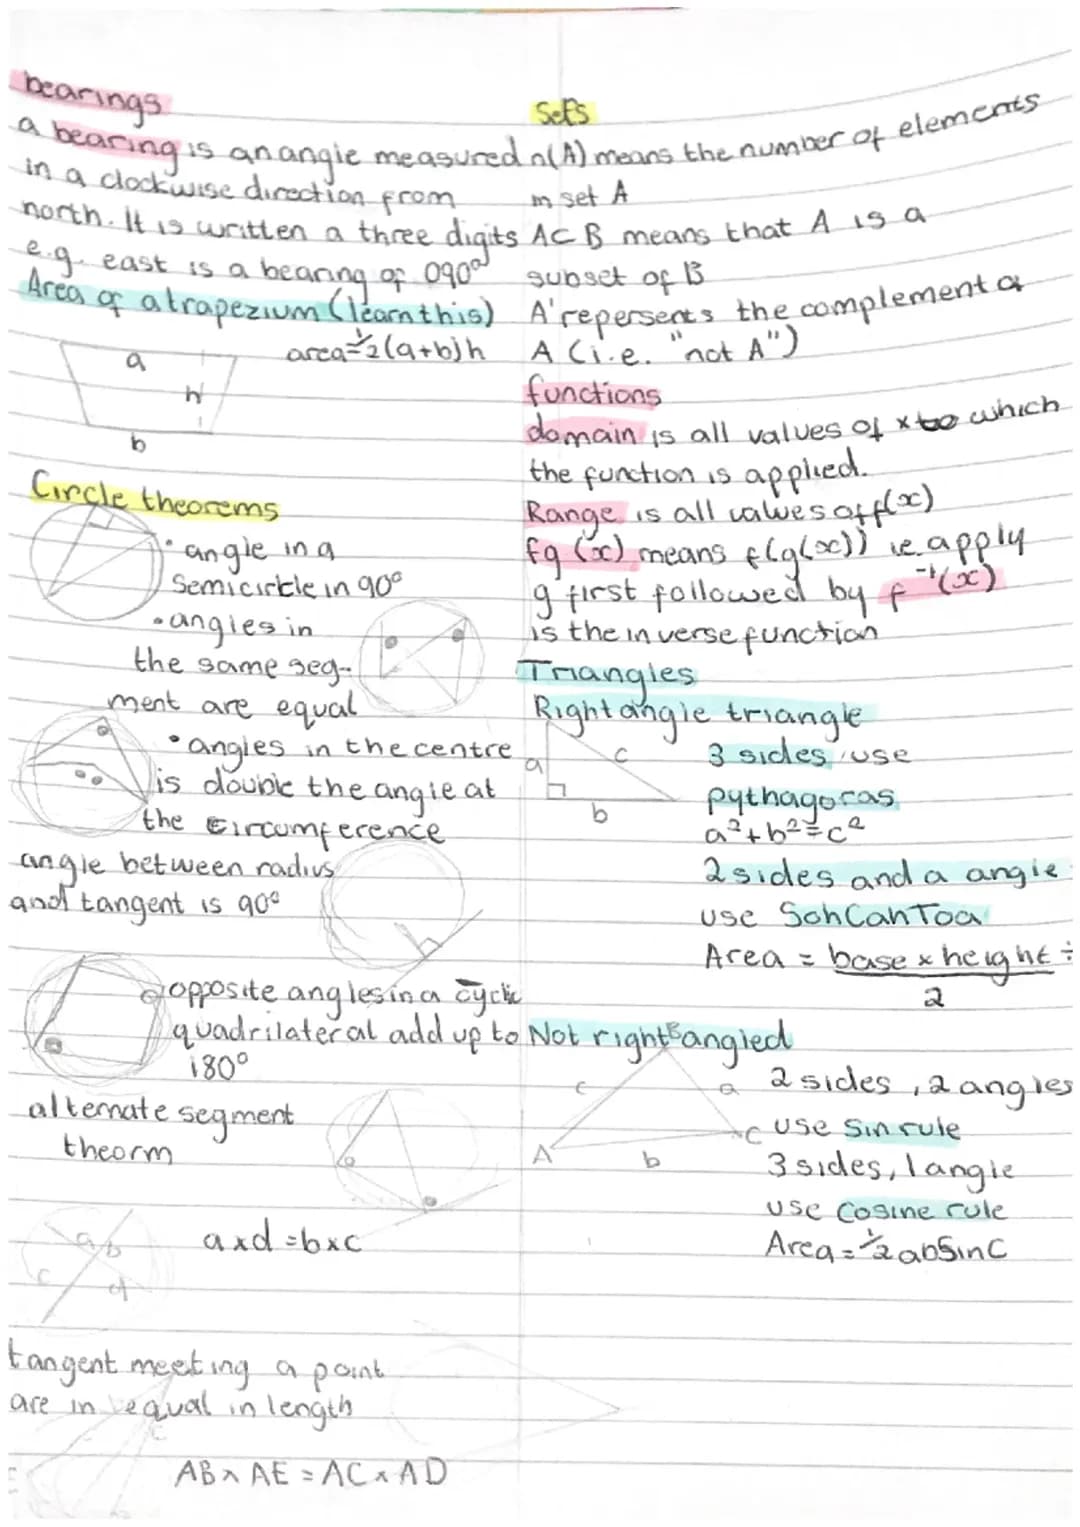 bearings
a bearing is an angle measured
in a clockwise direction from
north. It is written a three digits
e.g. east is a bearing of 090°
Area of a trapezium (learn this)
area=½(a+b)h
a
h
b
Circle theorems
• angle in a
semicirtcle in 90°
• angles in
the same seg-
ment are equal
• angles in the centre
is double the angle at
the circumference
angle between radius
and tangent is 90°
opposite angles in a cyclic
quadrilateral add up to
180°
alternate segment
theorm
a b
c
d
axd = bxc
tangent meeting a point
are in equal in length
AB x AE = AC x AD
Sets
n(A) means the number of elements
in set A
A⊂B means that A is a
subset of B
A' repersents the complement of
A (i.e. "not A")
functions
domain is all values of x to which
the function is applied.
Range is all values of f(x)
fg (x) means f(g(x)) ie. apply
g first followed by f⁻¹(x)
is the inverse function
Triangles
Right angle triangle
a
c
b
3 sides, use
pythagoras
a²+b²=c²
2 sides and a angle
use SohCahToa
Area = base x height ÷
2
Not right angled
B
c
a
A
C
b
2 sides, 2 angles
use Sin rule
3 sides, 1 angle
use Cosine rule
Area = ½ abSinC